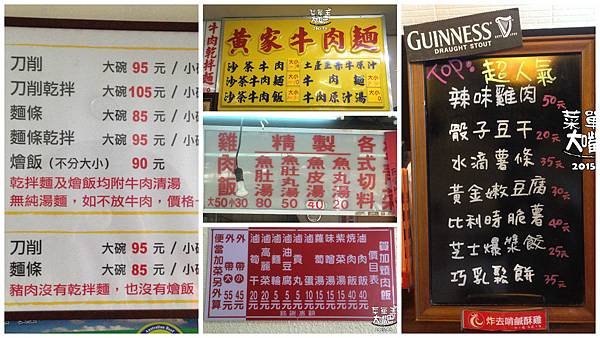 刀削 大碗 95 元 / 小碗
刀削乾拌 大碗 105 元 / 小
麵條 大碗 85 元 / 小碗
麵條乾拌 大碗 95 元 / 小
燴飯 (不分大小) 90 元
乾拌麵及燴飯均附牛肉清湯
無純湯麵，如不放牛肉，價格一
刀削 大碗 95 元 / 小碗
麵條 大碗 85 元 / 小碗
豬肉沒有乾拌麵，也沒有燴飯
牛肉乾拌麵
黃家牛肉麵
沙茶牛肉 大 小
沙茶牛肉麵 大 小 牛肉麵 大 小
沙茶牛肉飯 大 小 牛肉原汁湯 大 小
雞肉飯 大50 小30
精製
魚肚湯 80
魚肚丸湯 50
魚皮湯 40
魚丸湯 20
各式切料
買加燒肉飯
價目表
便當加菜另外算
外帶大 55元
外帶小 45元
GUINNESS
DRAUGHT STOUT
TOP: 超人氣
辣味雞肉 50元
骰子豆干 20元
水滴薯條 35元
黃金嫩豆腐 30元
比利時脆薯 40元
芝士爆漿餃 25元
巧乳鬆餅 35元
炸去啃鹹酥雞
菜單
大嘴
2015